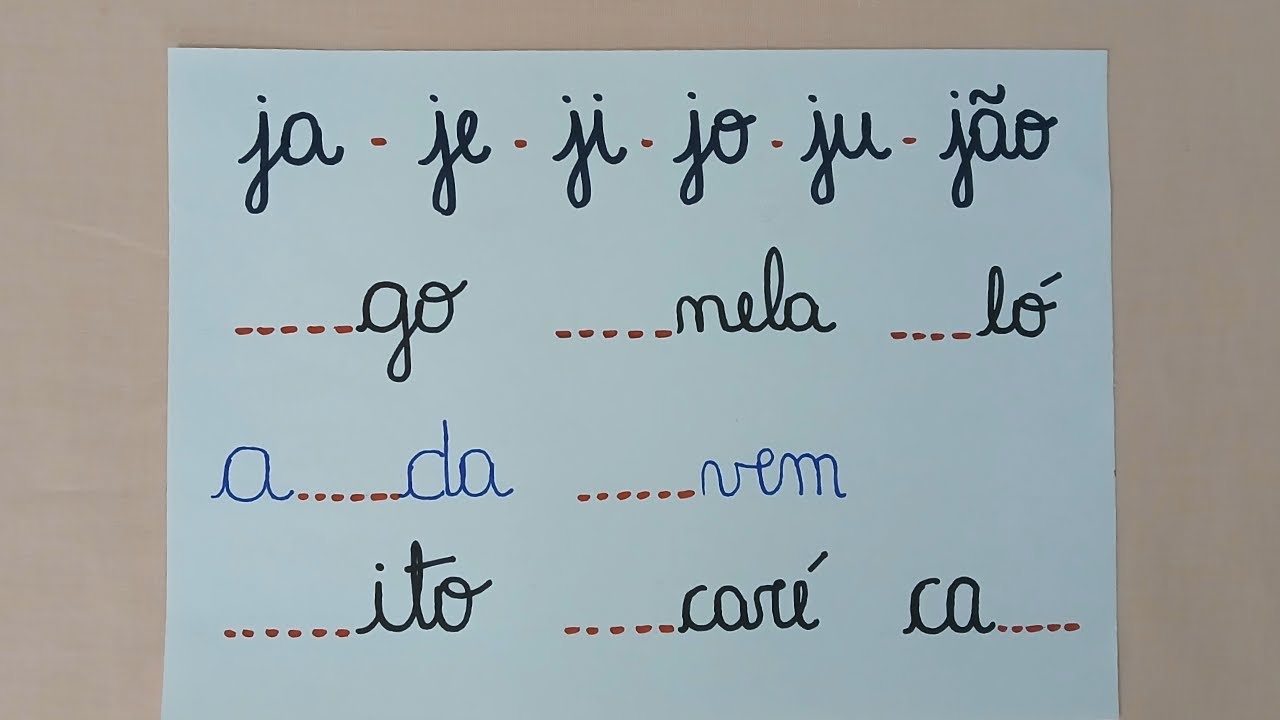 ja - je - ji - jo - ju - jão
.....go .....nela ....ló
a.....da ......vem
......ito .....caré ca.....